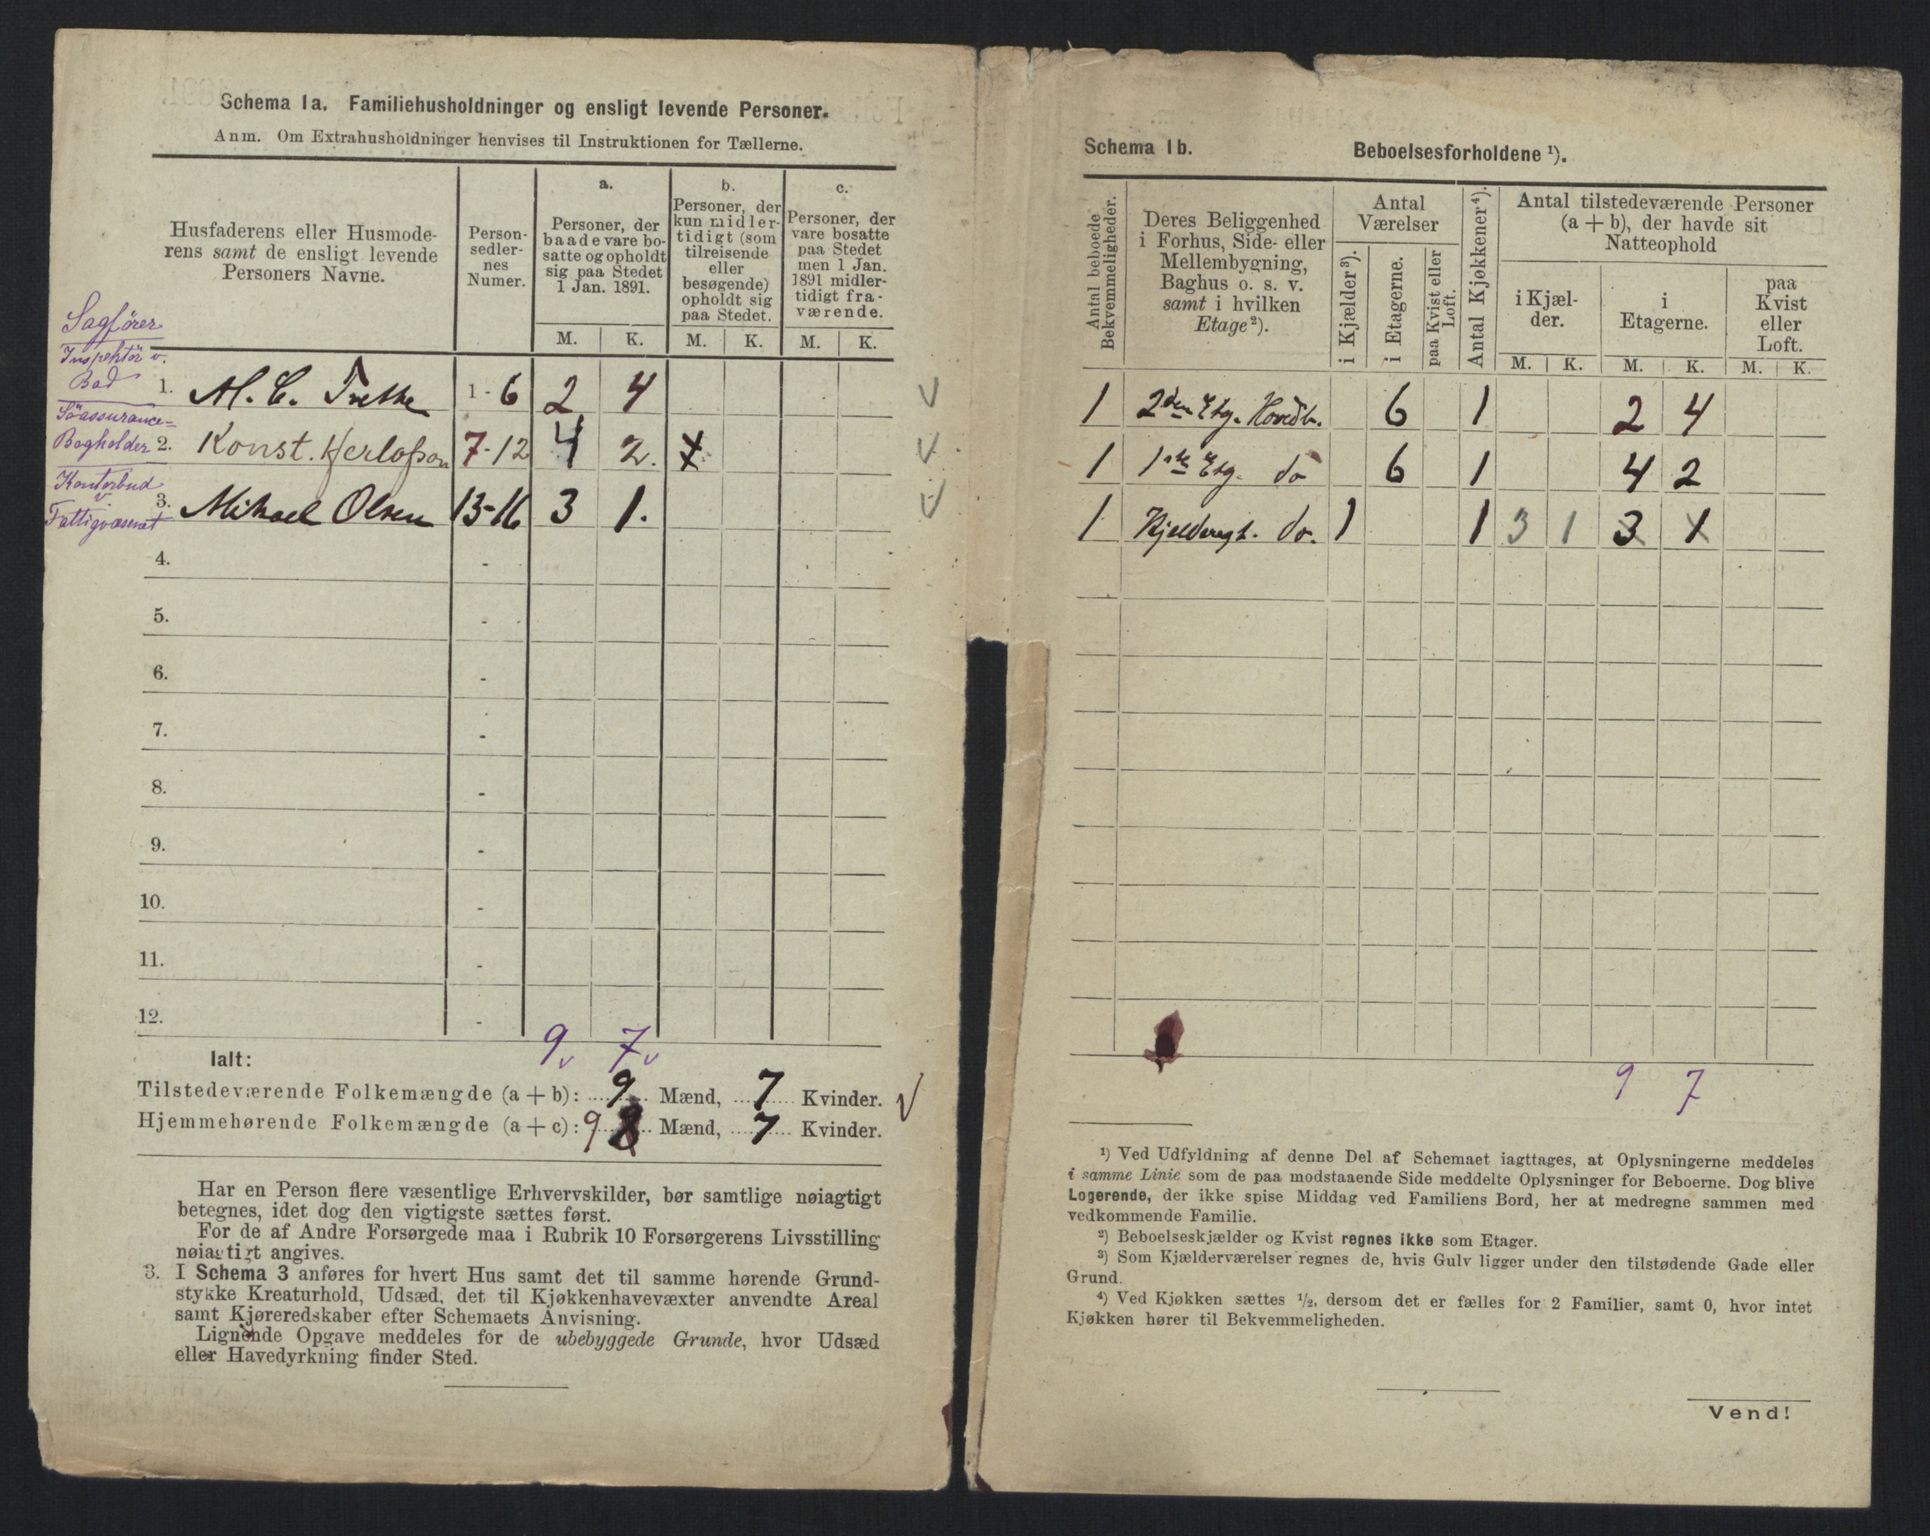 Schema 1a. Familiehusholdninger og ensligt levende Personer.
Anm. Om Extrahusholdninger henvises til Instruktionen for Tællerne.
Husfaderens eller Husmoderens samt de ensligt levende Personers Navne.
Personsedlernes Numer.
a.
Personer, der baade vare bosatte og opholdt sig paa Stedet 1 Jan. 1891.
b.
Personer, der kun midlertidigt (som tilreisende eller besøgende) opholdt sig paa Stedet.
c.
Personer, der vare bosatte paa Stedet men 1 Jan. 1891 midlertidigt fraværende.
M. K. M. K. M. K.
Sagfører
Inspektör v.
Bad
1. M. C. 1-6 2 4 v
Söassurance-
Bogholder
2. Konst. Herlofson 7-12 4 2. v
Kontorbud
v
Fattigvæsenet
3. Mikael Olsen 13-16 3 1. v
4. -
5. -
6. -
7. -
8. -
9. -
10. -
11. -
12. -
9 v 7 v
Ialt:
Tilstedeværende Folkemængde (a + b): 9 Mænd, 7 Kvinder. v
Hjemmehørende Folkemængde (a + c): 9 8 Mænd, 7 Kvinder.
Har en Person flere væsentlige Erhvervskilder, bør samtlige nøiagtigt
betegnes, idet dog den vigtigste sættes først.
For de af Andre Forsørgede maa i Rubrik 10 Forsørgerens Livsstilling
nøiagtigt angives.
3. I Schema 3 anføres for hvert Hus samt det til samme hørende Grund-
stykke Kreaturhold, Udsæd, det til Kjøkkenhavevæxter anvendte Areal
samt Kjøreredskaber efter Schemaets Anvisning.
Lignende Opgave meddeles for de ubebyggede Grunde, hvor Udsæd
eller Havedyrkning finder Sted.
Schema 1b. Beboelsesforholdene ¹).
Antal beboede Bekvemmeligheder.
Deres Beliggenhed i Forhus, Side- eller Mellembygning, Baghus o. s. v. samt i hvilken Etage ²).
Antal Værelser
i Kjælder ³).
i Etagerne.
paa Kvist eller Loft.
Antal Kjøkkener ⁴).
Antal tilstedeværende Personer (a + b), der havde sit Natteophold
i Kjælder.
i Etagerne.
paa Kvist eller Loft.
M. K. M. K. M. K.
1 2den Etg. Hovedb. 6 1 2 4
1 1ste Etg. do 6 1 4 2
1 do. 1 1 3 1 3 1
9 7
¹) Ved Udfyldning af denne Del af Schemaet iagttages, at Oplysningerne meddeles
i samme Linie som de paa modstaaende Side meddelte Oplysninger for Beboerne. Dog blive
Logerende, der ikke spise Middag ved Familiens Bord, her at medregne sammen med
vedkommende Familie.
²) Beboelseskjælder og Kvist regnes ikke som Etager.
³) Som Kjælderværelser regnes de, hvis Gulv ligger under den tilstødende Gade eller
Grund.
⁴) Ved Kjøkken sættes ¹/₂, dersom det er fælles for 2 Familier, samt 0, hvor intet
Kjøkken hører til Bekvemmeligheden.
Vend!